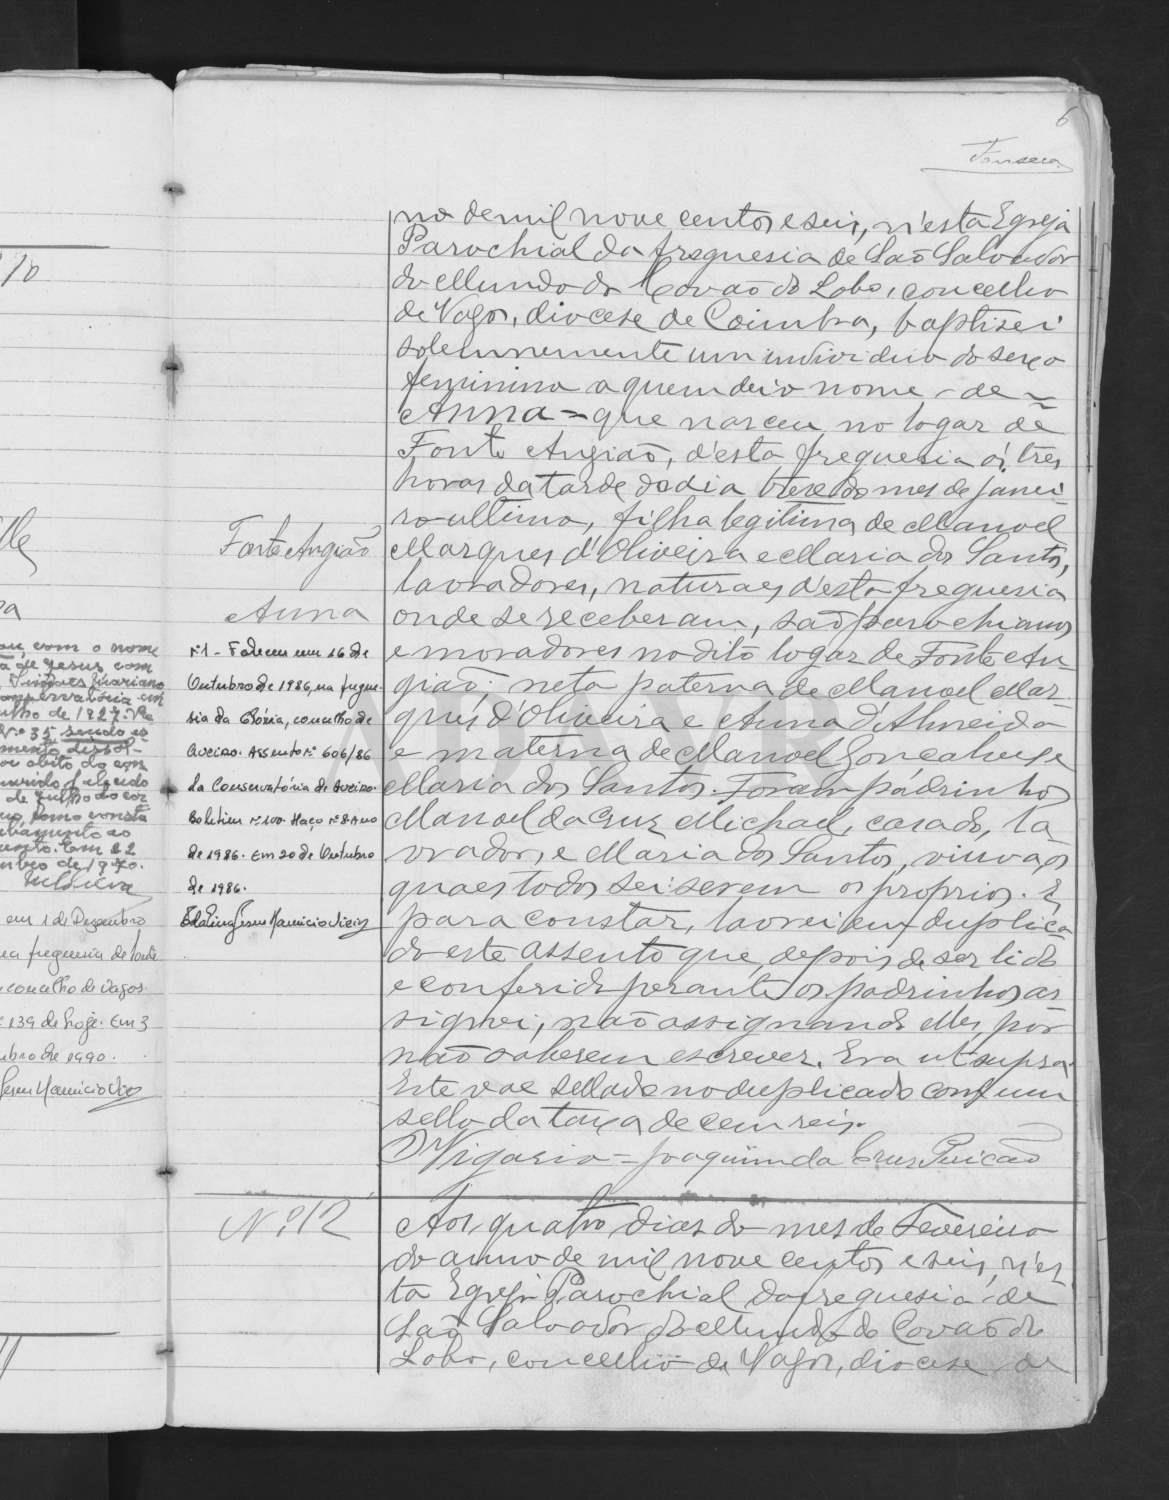 6
Fonseca
no de mil nove centos e seis, n'esta Egreja
Parochial da freguesia de São Salvador
do Mundo do Covão do Lobo, concelho
de Vagos, diocese de Coimbra, baptisei
solemnemente um individuo do sexo
feminino a quem dei o nome - de -
Anna = que nasceu no logar de
Fonte Angião, d'esta freguesia ás tres
horas da tarde do dia treze do mes de janei-
ro ultimo, filha legitima de Manoel
Marques d'Oliveira e Maria dos Santos,
lavradores, naturaes d'esta freguesia
onde se receberam, são parochianos
e moradores no dito logar de Fonte An-
gião; neta paterna de Manoel Mar-
ques d'Oliveira e Anna d'Almeida
e materna de Manoel Gonçalves e
Maria dos Santos. Foram padrinhos
Manoel da Cruz Michael, casado, la-
vrador, e Maria dos Santos, viuva, os
quaes todos sei serem os proprios. E
para constar, lavrei em duplica-
do este assento que, depois de ser lido
e conferido perante os padrinhos as-
signei, não assignando elles, por
não saberem escrever. Era ut supra.
Este vae sellado no duplicado com um
sello da taxa de cem reis.
O Vigario = Joaquim da Cruz
Fonte Angião
Anna
Nº1 - Faleceu em 16 de
Outubro de 1986, na fregue-
sia da Glória, concelho de
Aveiro. Assento nº 606/86
da Conservatória de Aveiro.
Boletim nº 100 Maço nº 8 Ano
de 1986. Em 20 de Outubro
de 1986.
Nº 12
Aos quatro dias do mes de Fevereiro
do anno de mil nove centos e seis, n'es-
ta Egreja Parochial da freguesia de
São Salvador do Mundo do Covão do
Lobo, concelho de Vagos, diocese de
10
ou com o nome
de Jesus com
conservatória em
julho de 1927.
Nº 35
mento dissol-
óbito do
marido falecido
de julho do cor
como consta
Em 22
de 1970.
em 1 de Dezembro
na freguesia de
concelho de Vagos
139 de hoje. Em 3
de 1990.